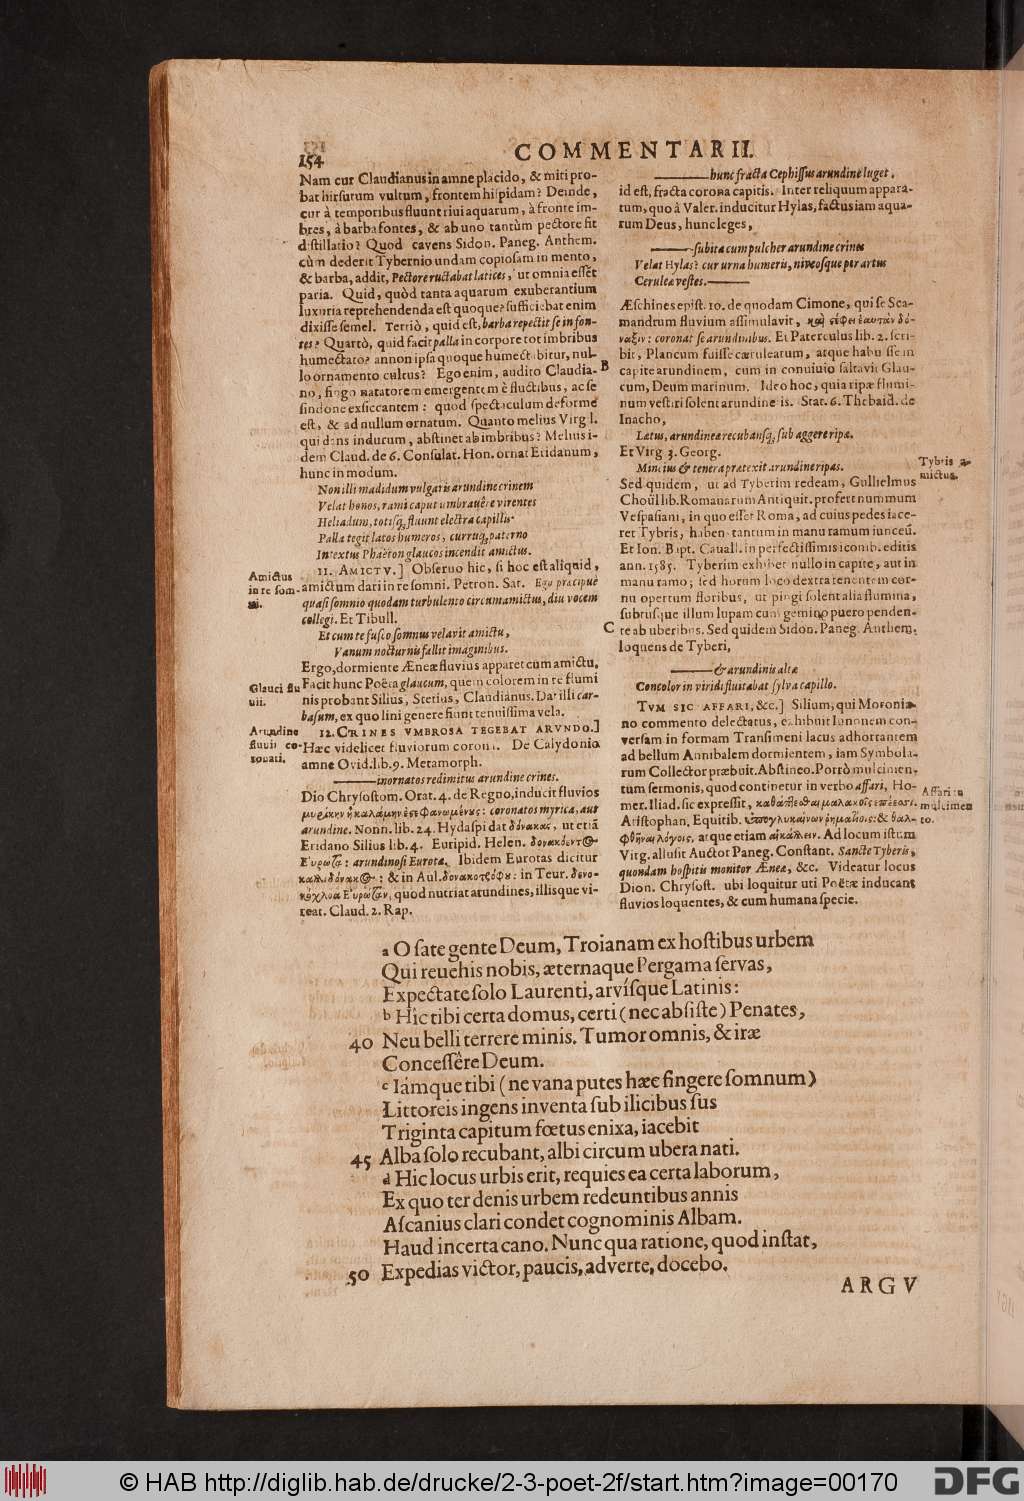 154
COMMENTARII.
Nam cur Claudianus in amne placido, & miti pro-
bat hirsutum vultum, frontem hispidam? Deinde,
cur à temporibus fluunt riui aquarum, à fronte im-
bres, à barba fontes, & ab uno tantùm pectore fit
distillatio? Quod cavens Sidon. Paneg. Anthem.
cùm dederit Tybernio undam copiosam in mento,
& barba, addit, Pectore ructabat latices, ut omnia esset
paria. Quid, quòd tanta aquarum exuberantium
luxuria reprehendenda est quoque? sufficiebat enim
dixisse semel. Tertiò, quid est, barba repectit se in fon-
tes? Quartò, quid facit palla in corpore tot imbribus
humectato? annon ipsa quoque humectabitur, nul-
lo ornamento cultus? Ego enim, audito Claudia-
no, fingo natatorem emergentem è fluctibus, ac se
sindone exsiccantem: quod spectaculum deforme
est, & ad nullum ornatum. Quanto melius Virgl.
qui dans indutum, abstinet ab imbribus? Melius i-
dem Claud. de 6. Consulat. Hon. ornat Eridanum,
hunc in modum.
Non illi madidum vulgaris arundine crinem
Velat honos, rami caput umbravêre virentes
Heliadum, totisq; fluunt electra capillis.
Palla tegit latos humeros, curruq; paterno
Intextus Phaëton glaucos incendit amictus.
11. AMICTV.] Obseruo hic, si hoc est aliquid,
amictum dari in re somni. Petron. Sat. Ego præcipuè
quasi somnio quodam turbulento circumamictus, diu vocem
collegi. Et Tibull.
Et cum te fusco somnus velavit amictu,
Vanum nocturnis fallit imaginibus.
Ergo, dormiente Æneæ fluvius apparet cum amictu.
Facit hunc Poëta glaucum, quem colorem in re flumi
nis probant Silius, Stetius, Claudianus. Dat illi car-
basum, ex quo lini genere fiunt tenuissima vela.
12. CRINES VMBROSA TEGEBAT ARVNDO.]
Hæc videlicet fluviorum corona. De Calydonio
amne Ovid. lib. 9. Metamorph.
inornatos redimitus arundine crines.
Dio Chrysostom. Orat. 4. de Regno, inducit fluvios
μυρίκην ἢ καλάμην ἐστεφανωμένους: coronatos myrica, aut
arundine. Nonn. lib. 24. Hydaspi dat δόνακας, ut etiã
Eridano Silius lib. 4. Euripid. Helen. δονακόεντος
Εὐρώτα: arundinosi Eurotæ. Ibidem Eurotas dicitur
καλλιδόνακος: & in Aul. δονακοτρόφος: in Teur. δενο-
Εὐρώταν, quod nutriat arundines, illisque vi-
reat. Claud. 2. Rap.
Amictus
in re som-
ni.
Glauci flu
uii.
Arundine
fluvii co-
ronati.
hunc fracta Cephissus arundine luget,
id est, fracta corona capitis. Inter reliquum appara-
tum, quo à Valer. inducitur Hylas, factus iam aqua-
rum Deus, hunc leges,
subita cum pulcher arundine crines
Velat Hylas? cur urna humeris, niveosque per artus
Ceruleæ vestes.
Æschines epist. 10. de quodam Cimone, qui se Sca-
mandrum fluvium assimulavit, καὶ στέφει ἑαυτὸν δό-
ναξιν: coronat se arundinibus. Et Paterculus lib. 2. scri-
bit, Plancum fuisse cæruleatum, atque habuisse in
capite arundinem, cum in conuiuio saltavit Glau-
cum, Deum marinum. Ideo hoc, quia ripæ flumi-
num vestiri solent arundineis. Stat. 6. Thebaid. de
Inacho,
Latus, arundinea recubansq; sub aggere ripæ.
Et Virg 3. Georg.
Mincius & tenera prætexit arundine ripas.
Sed quidem, ut ad Tyberim redeam, Gulielmus
Choül lib. Romanarum Antiquit. profert nummum
Vespasiani, in quo esset Roma, ad cuius pedes iace-
ret Tybris, habens tantum in manu ramum iunceũ.
Et Ion. Bapt. Cauall. in perfectissimis iconib. editis
ann. 1585. Tyberim exhibet nullo in capite, aut in
manu ramo; sed horum loco dextra tenentem cor-
nu opertum floribus, ut pingi solent alia flumina,
subtusque illum lupam cum gemino puero penden-
te ab uberibus. Sed quidem Sidon. Paneg. Anthem.
loquens de Tyberi,
& arundinis altæ
Concolor in viridi fluitabat sylva capillo.
TVM SIC AFFARI, &c.] Silium, qui Moronia-
no commento delectatus, exhibuit Iunonem con-
versam in formam Transimeni lacus adhortantem
ad bellum Annibalem dormientem, iam Symbola-
rum Collector præbuit. Abstineo. Porrò mulcimen-
tum sermonis, quod continetur in verbo affari, Ho-
mer. Iliad. sic expressit, καθάπτεσθαι μαλακοῖς ἐπέεσσι.
Aristophan. Equitib. & θαλ-
φθῆναι λόγοις, atque etiam αἰκάλλειν. Ad locum istum
Virg. allusit Auctor Paneg. Constant. Sancte Tyberis,
quondam hospitis monitor Ænea, &c. Videatur locus
Dion. Chrysost. ubi loquitur uti Poëtæ inducant
fluvios loquentes, & cum humana specie.
B
C
Tybris a-
mictus.
Affari
mulcimen
to.
a O sate gente Deum, Troianam ex hostibus urbem
Qui reuehis nobis, æternaque Pergama servas,
Expectate solo Laurenti, arvísque Latinis:
b Hic tibi certa domus, certi (nec absiste) Penates,
40 Neu belli terrere minis. Tumor omnis, & iræ
Concessêre Deum.
c Iámque tibi (ne vana putes hæc fingere somnum)
Littoreis ingens inventa sub ilicibus sus
Triginta capitum fœtus enixa, iacebit
45 Alba solo recubant, albi circum ubera nati.
d Hic locus urbis erit, requies ea certa laborum,
Ex quo ter denis urbem redeuntibus annis
Ascanius clari condet cognominis Albam.
Haud incerta cano. Nunc qua ratione, quod instat,
50 Expedias victor, paucis, adverte, docebo.
ARGV
© HAB http://diglib.hab.de/drucke/2-3-poet-2f/start.htm?image=00170
DFG